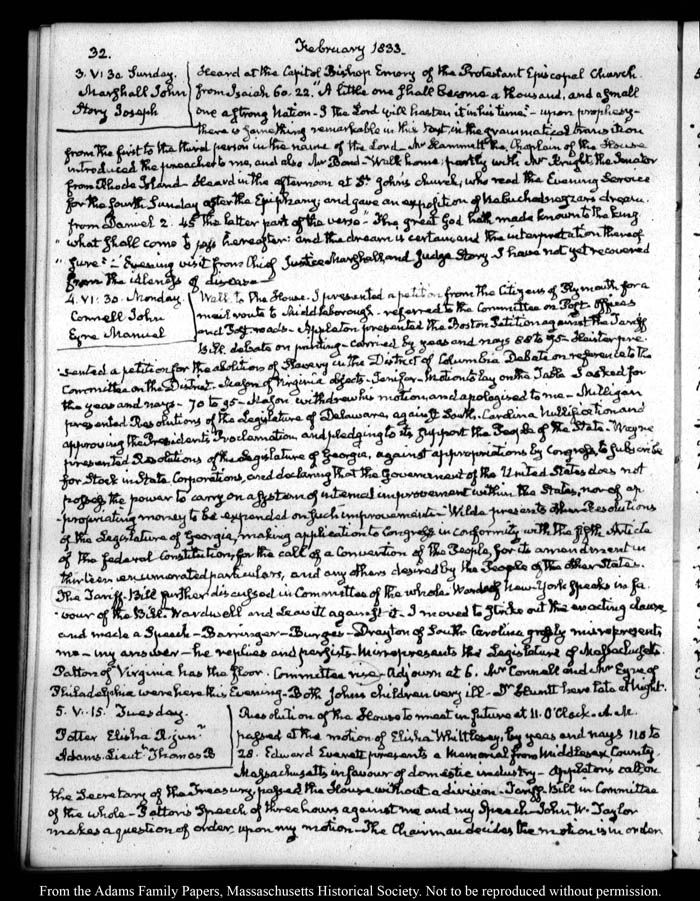 32.
February 1833.
3. VI. 30. Sunday.
Marshall John
Story Joseph
Heard at the Capitol Bishop Emory of the Protestant Episcopal Church.
from Isaiah 60. 22. "A little one shall become a thousand, and a small
one a strong Nation - I the Lord will hasten it in his time." - upon prophesy -
there is something remarkable in this text, in the grammatical transition
from the first to the third person in the name of the Lord - Mr Hammett the Chaplain of the House
introduced the preacher to me, and also Mr Bond - Walk home, partly with Mr Knight, the Senator
from Rhode Island - Heard in the afternoon at St. John's church, who read the Evening Service
for the fourth Sunday after the Epiphany; and gave an exposition of Nabuchadnezzars dream.
from Daniel 2. 45 the latter part of the verse - "The great God hath made known to the king
" what shall come to pass hereafter: and the dream is certain, and the interpretation thereof
" sure" - Evening visit from Chief Justice Marshall, and Judge Story. I have not yet recovered
from the idleness of disease -
4. VI. 30. Monday.
Connell John
Eyre Manuel
Walk to the House. I presented a petition from the Citizens of Plymouth for a
mail route to Middleborough - referred to the Committee on Post-offices
and Post roads - Appleton presented the Boston Petition against the Tariff
Bill. debate on printing - carried by yeas and nays 88 to 95 - Heister pre-
sented a petition for the abolition of Slavery in the District of Columbia Debate on reference to the
Committee on the District. Mason of Virginia objects - Jenifer - Motion to lay on the Table I asked for
the yeas and nays - 70 to 95 - Mason withdrew his motion, and apologised to me - Milligan
presented Resolutions of the Legislature of Delaware, against South-Carolina Nullification and
approving the President's Proclamation, and pledging to its support the People of the State - Wayne
presented Resolutions of the Legislature of Georgia, against appropriations by Congress, to subscribe
for Stock in State Corporations, and declaring that the Government of the United States does not
possess the power to carry on a System of internal improvement within the States, nor of ap-
propriating money to be expended on such improvements - Wilde presents other Resolutions
of the Legislature of Georgia, making application to Congress in conformity with the fifth Article
of the federal Constitution, for the call of a Convention of the People, for its amendment in
thirteen enumerated particulars, and any others desired by the People of the other States.
The Tariff-Bill further discussed in Committee of the whole. Ward of New-York speaks in fa-
vour of the Bill. Wardwell and Leavitt against it. I moved to strike out the enacting clause
and made a Speech - Barringer - Burges - Drayton of South Carolina grossly misrepresents
me - my answer - he replies and persists - misrepresents the Legislature of Massachusetts.
Patton of Virginia has the floor. Committee rise - Adjourn at 6. Mr Connell and Mr Eyre of
Philadelphia were here this Evening - Both John's children very ill - Dr Huntt here late at Night.
5. V. 15. Tuesday.
Potter Elisha R. junr
Adams. Lieutt Thomas B
Resolution of the House to meet in future at 11. O'Clock A.M.
passed at the motion of Elisha Whittlesey, by yeas and nays 118 to
28. Edward Everett presents a Memorial from Middlesex County
Massachusetts in favour of domestic industry - Appleton's call on
the Secretary of the Treasury, passed the House without a division - Tariff Bill in Committee
of the whole - Patton's Speech of three hours against me and my Speech - John W. Taylor
makes a question of order, upon my motion - The Chairman decides the motion is in order
From the Adams Family Papers, Massachusetts Historical Society. Not to be reproduced without permission.